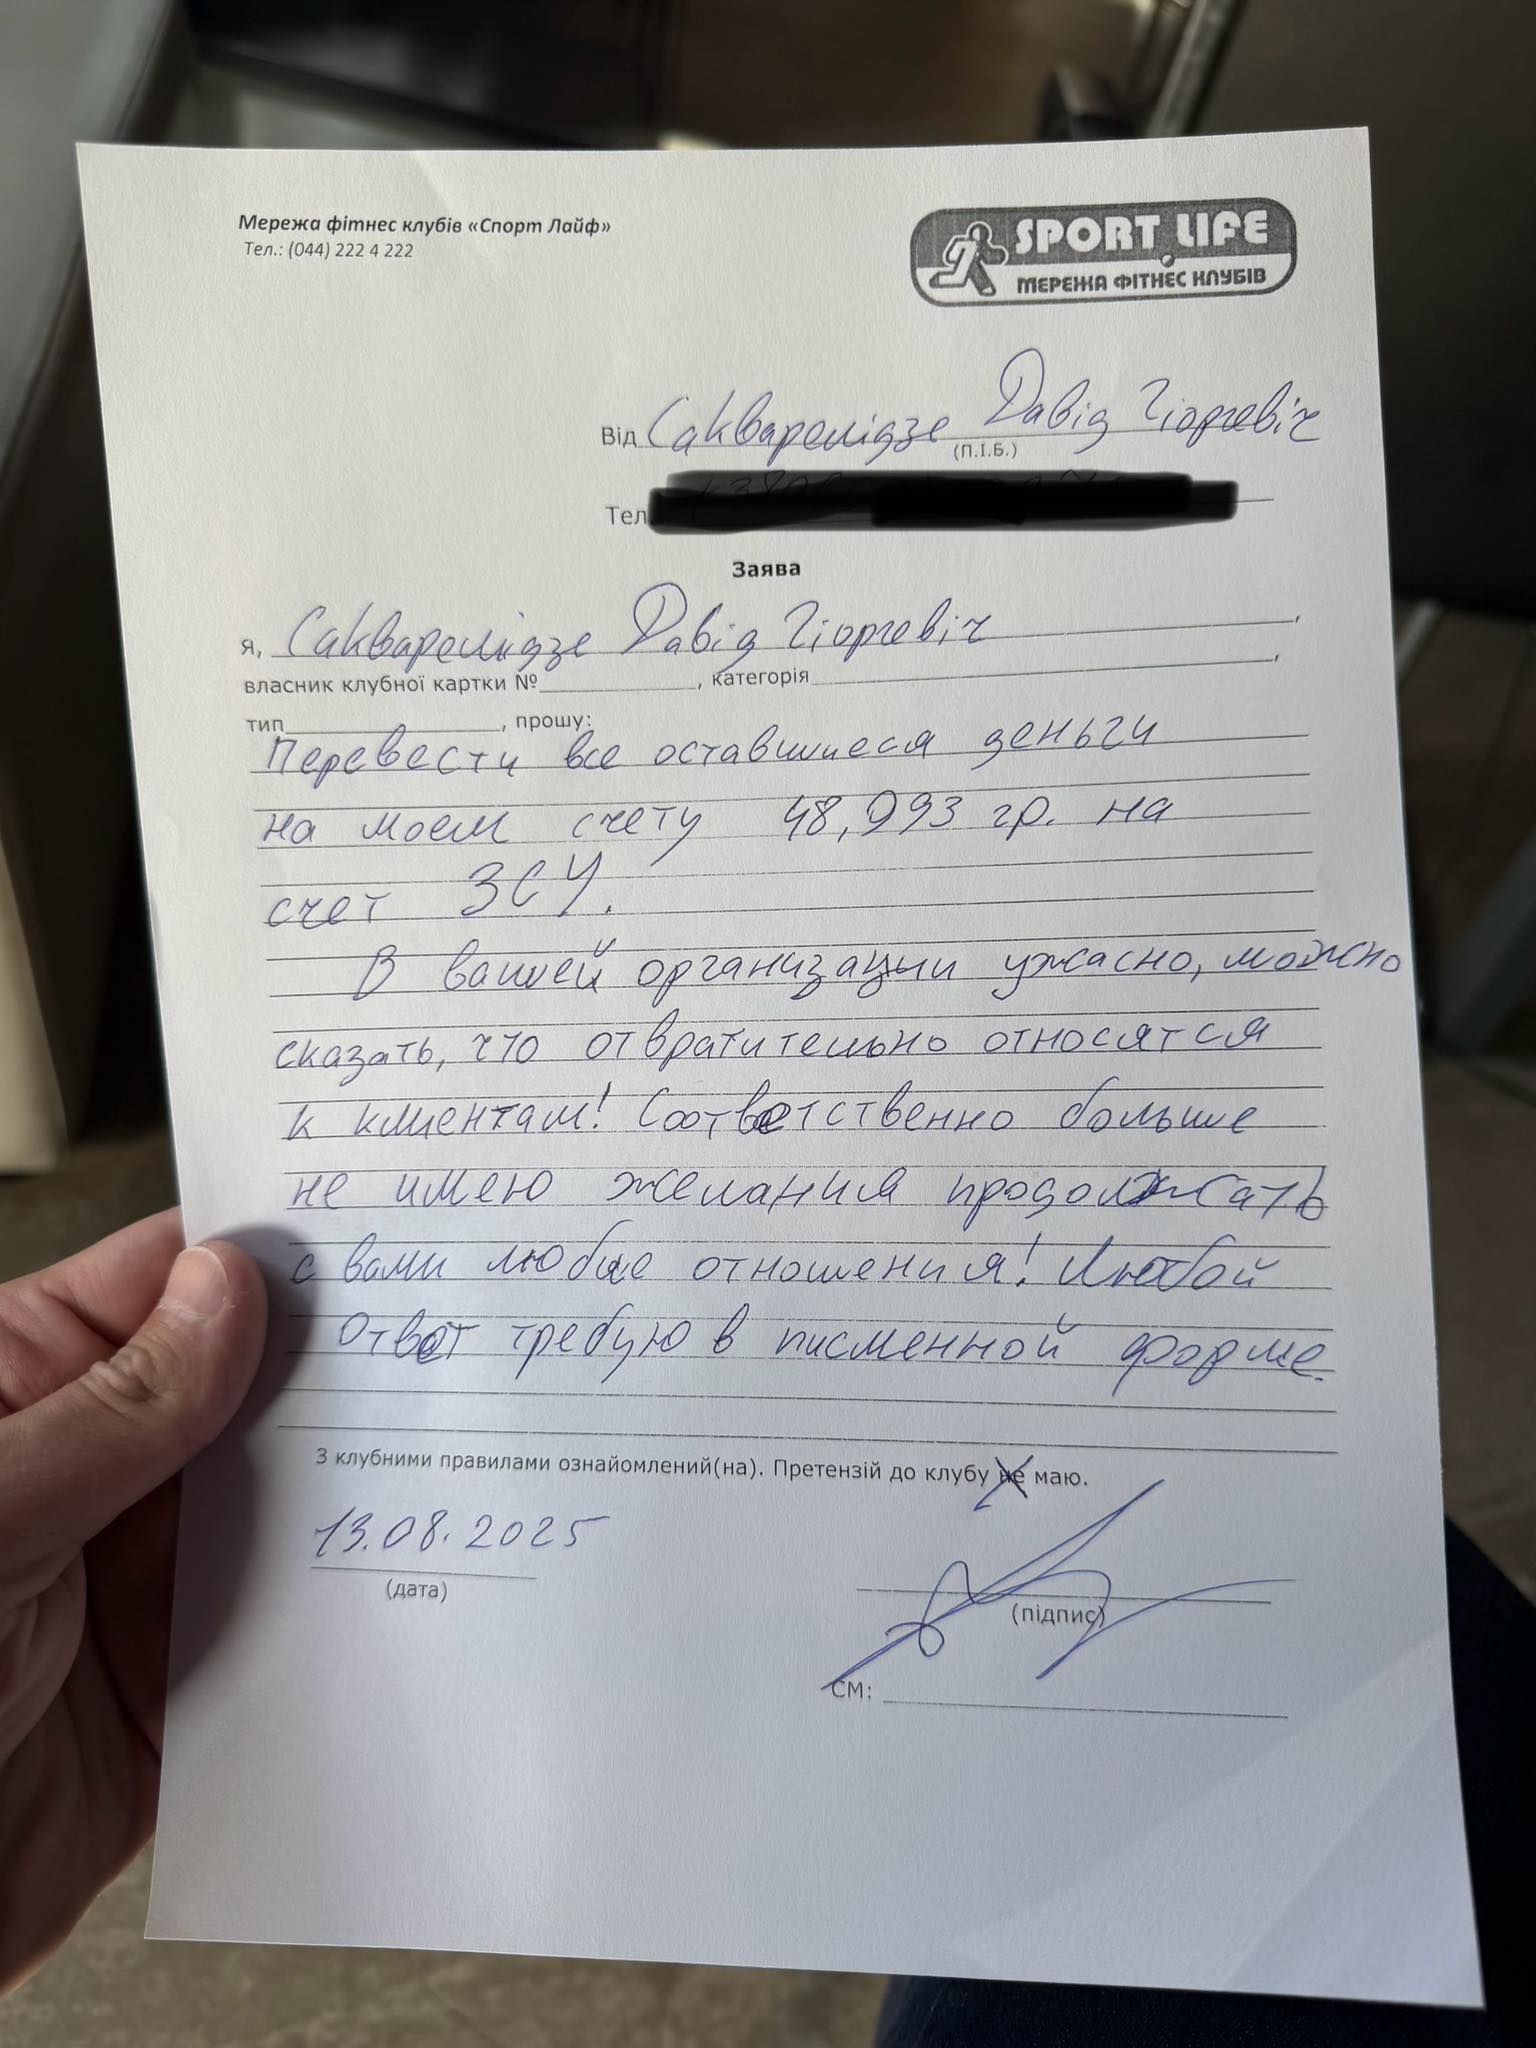 Мережа фітнес клубів «Спорт Лайф»
Тел.: (044) 222 4 222
SPORT LIFE
МЕРЕЖА ФІТНЕС КЛУБІВ
Від Сакварелідзе Давід Гіоргевіч
(П.І.Б.)
Тел
Заява
я, Сакварелідзе Давід Гіоргевіч,
власник клубної картки №____________, категорія____________,
тип____________, прошу:
Перевести все оставшиеся деньги
на моем счету 48,993 гр. на
счет ЗСУ.
В вашей организации ужасно, можно
сказать, что отвратительно относятся
к клиентам! Соответственно больше
не имею желания продолжать
с вами любые отношения! Любой
ответ требую в писменной форме.
З клубними правилами ознайомлений(на). Претензій до клубу не маю.
13.08.2025
(дата)
(підпис)
СМ: